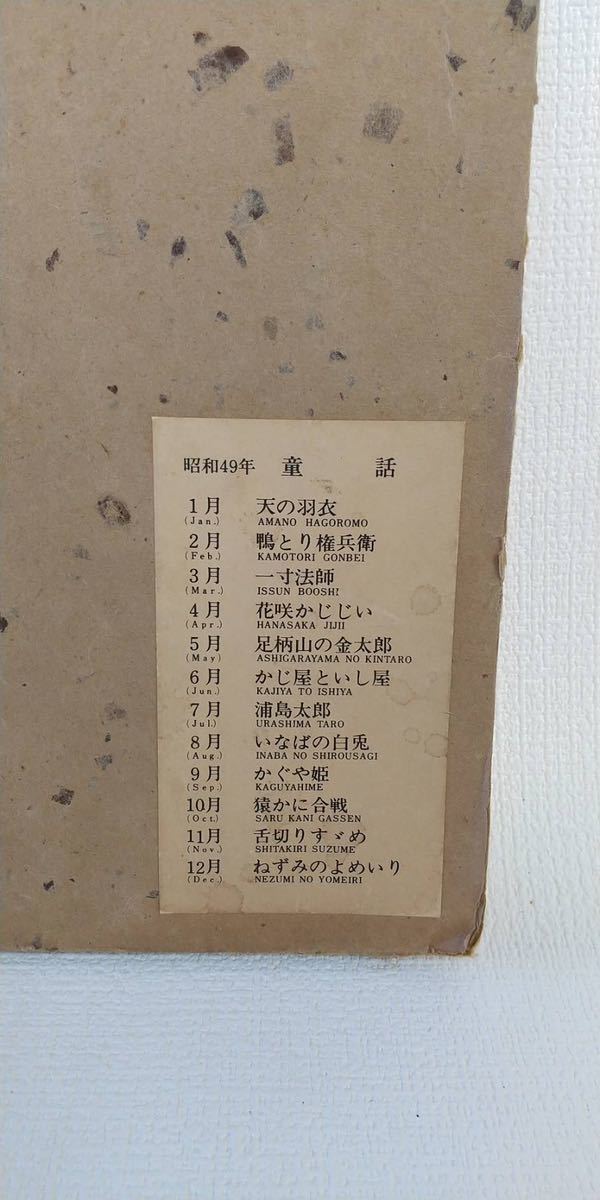 昭和49年 童 話
1月 天の羽衣
(Jan.) AMANO HAGOROMO
2月 鴨とり権兵衛
(Feb.) KAMOTORI GONBEI
3月 一寸法師
(Mar.) ISSUN BOOSHI
4月 花咲かじじい
(Apr.) HANASAKA JIJII
5月 足柄山の金太郎
(May) ASHIGARAYAMA NO KINTARO
6月 かじ屋といし屋
(Jun.) KAJIYA TO ISHIYA
7月 浦島太郎
(Jul.) URASHIMA TARO
8月 いなばの白兎
(Aug.) INABA NO SHIROUSAGI
9月 かぐや姫
(Sep.) KAGUYAHIME
10月 猿かに合戦
(Oct.) SARU KANI GASSEN
11月 舌切りすゞめ
(Nov.) SHITAKIRI SUZUME
12月 ねずみのよめいり
(Dec.) NEZUMI NO YOMEIRI